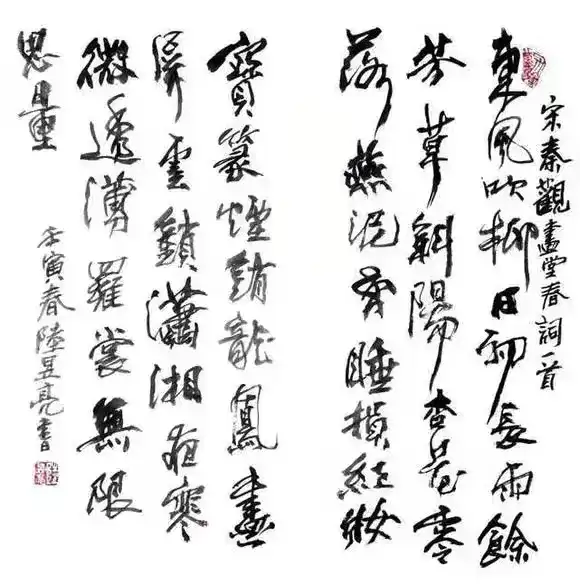 宋秦觀畫堂春詞一首
東風吹柳日初長雨餘
芳草斜陽杏花零
落燕泥香睡損紅妝
寶篆煙銷龍鳳畫
屏雲鎖瀟湘夜寒
微透薄羅裳無限
思量
壬寅春陸昱亮書